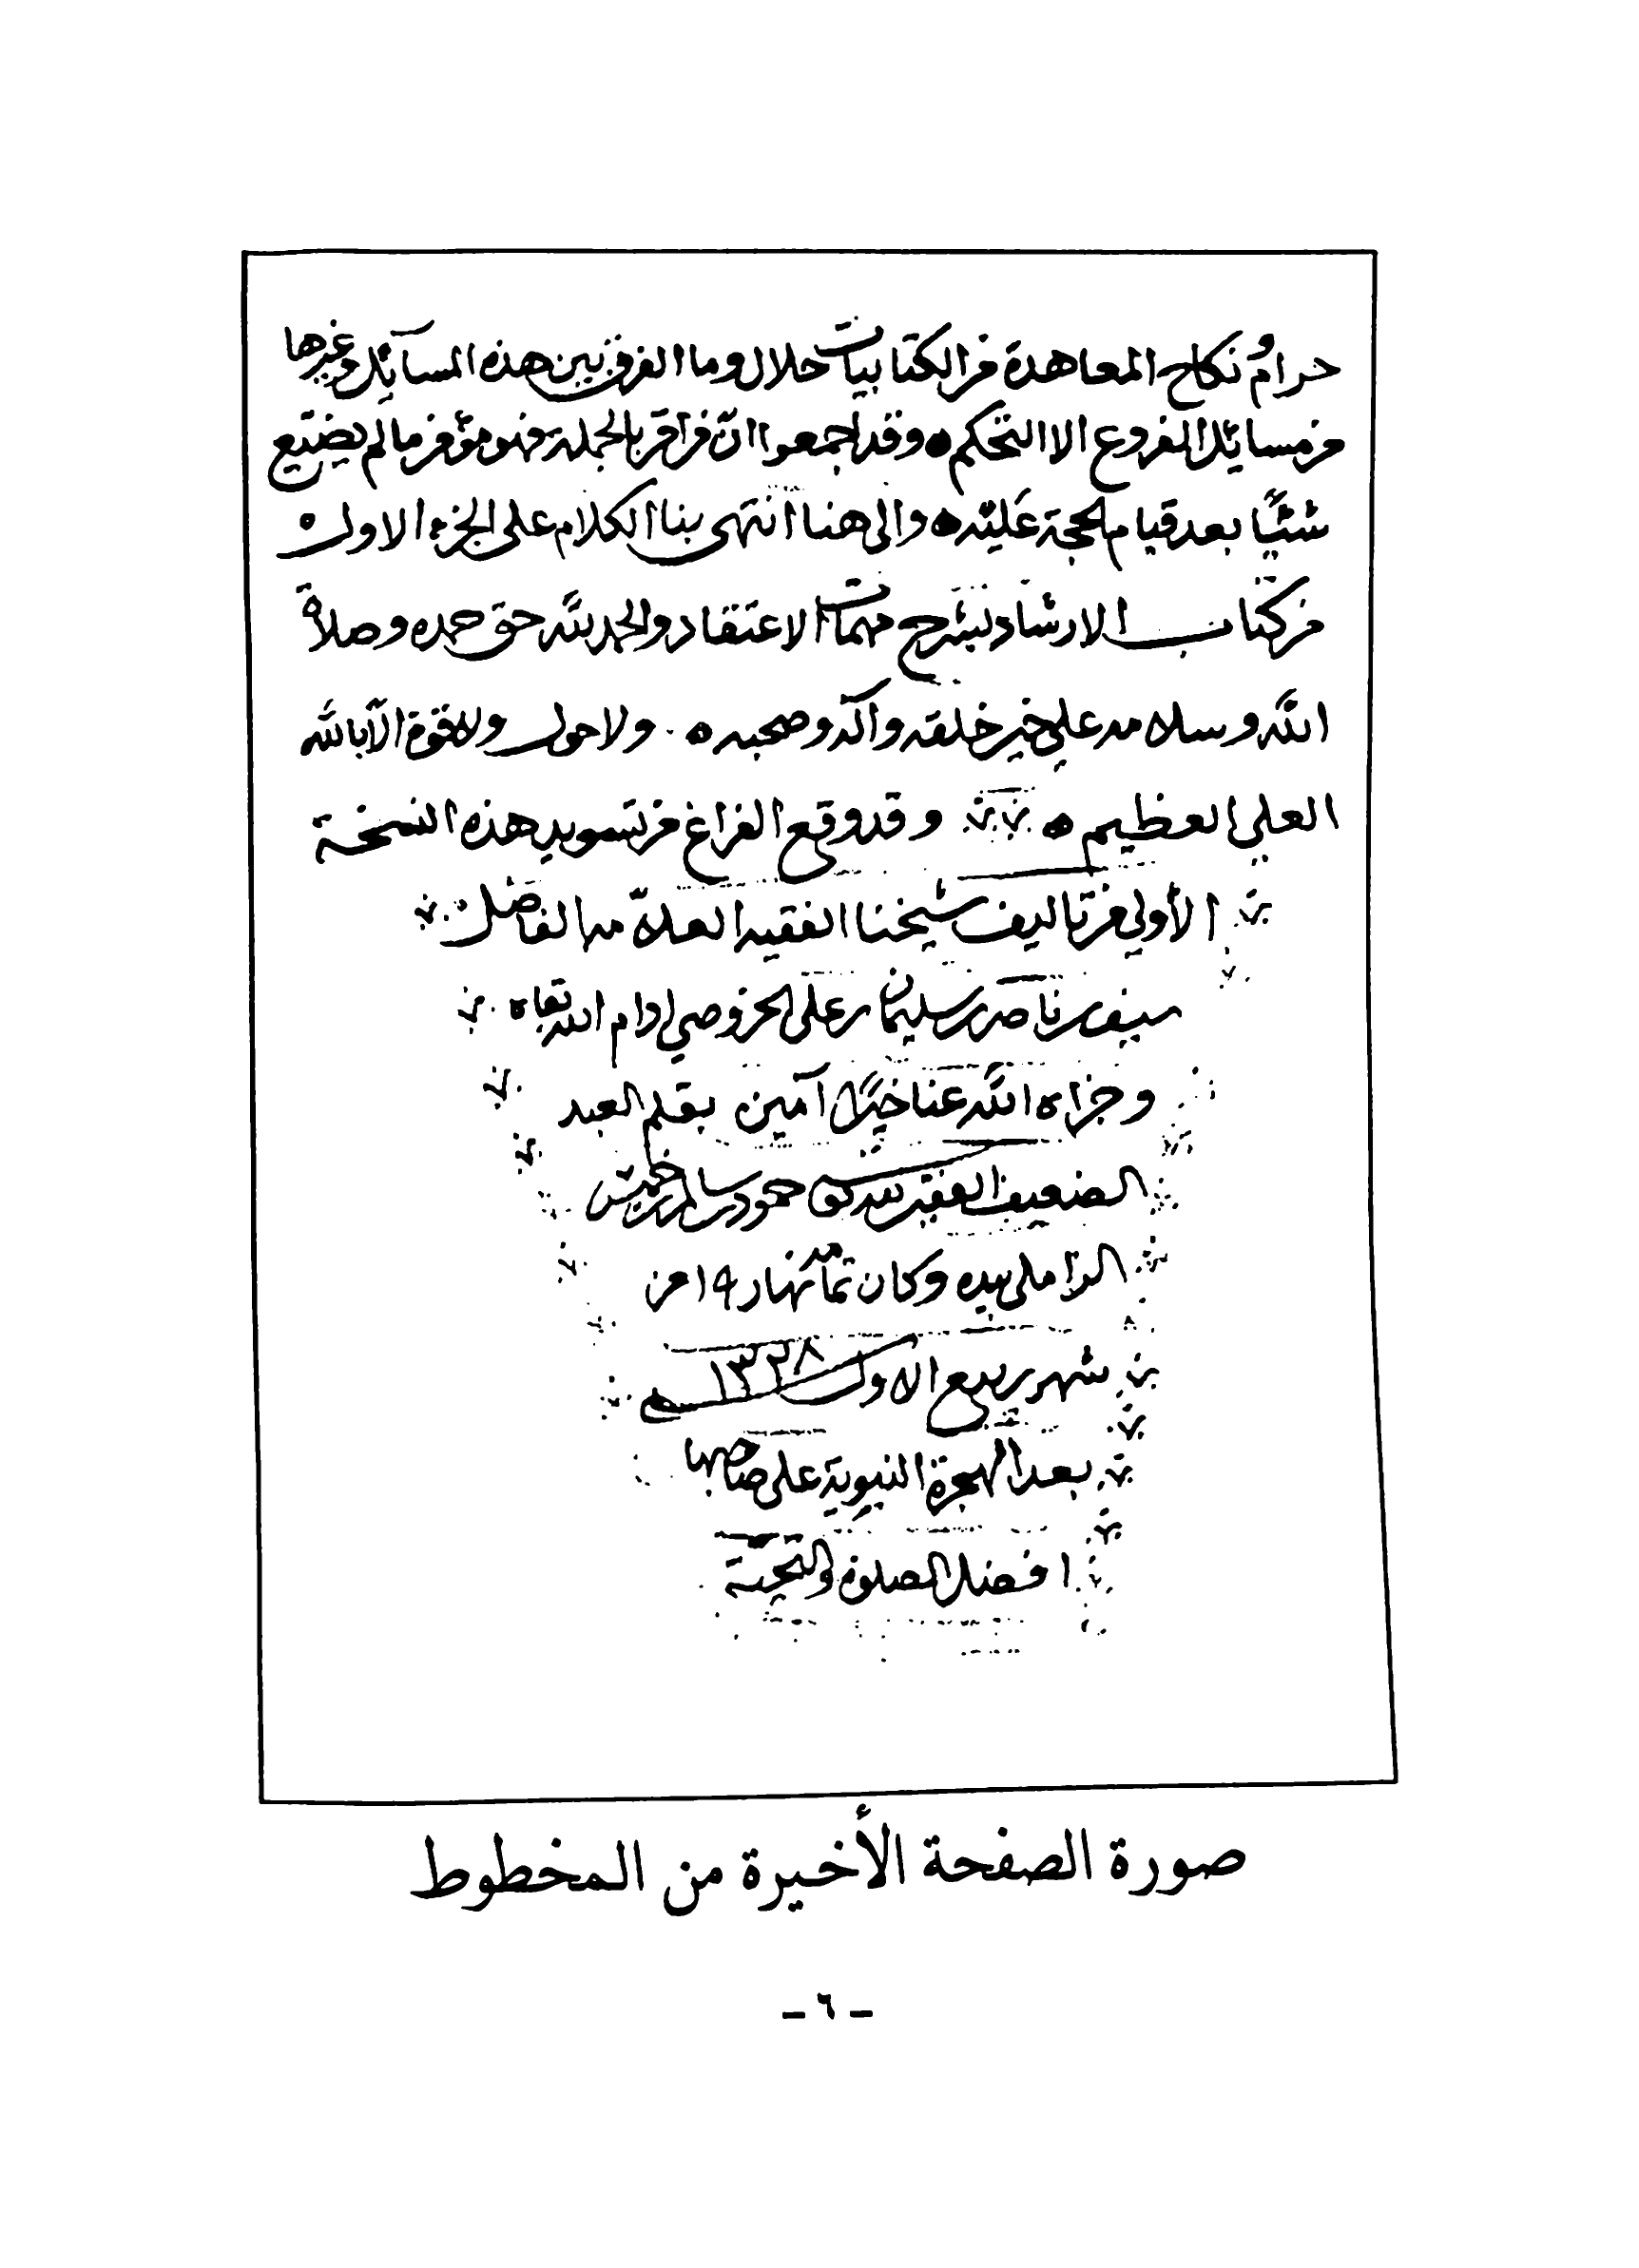 حرامٌ ونكاح المعاهدة من الكتابيات حلال وما الفرق بين هذه المسآئل وغيرها
من مسائل الفروع الا التحكم ه وقد اجمعوا انّ من اقرّ بالجملة فهو مؤمن ما لم يضيّع
شيئًا بعد قيام الحجة عليه ه والى هنا انتهى بنا الكلام على الجزء الاول
من كتاب الارشاد بشرح مهمات الاعتقاد والحمد لله حق حمده وصلاة
الله وسلامه على خير خلقه وآله وصحبه ه ولا حول ولا قوة الّا بالله
العلي العظيم ه وقد وقع الفراغ من تسويد هذه النسخة
الأولى من تاليف شيخنا الفقيه العلامه الفاضل
سيف بن ناصر بن سليمان بن علي الخروصي ادام الله بقاه
وجزاه الله عنا خيرًا آمين بقلم العبد
الضعيف الفقير لله حمود بن سالم بن خميس
الزاملي بيده وكان تمامه نهار ١٩ من
شهر ربيع الاول سنة ١٣٢٨
بعد الهجرة النبوية على صاحبها
افضل الصلوة والتحيّة
صورة الصفحة الأخيرة من المخطوط
- ٦ -